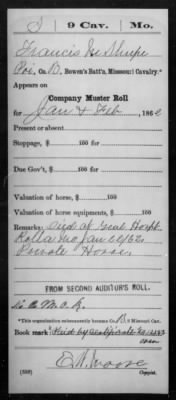 S | 9 Cav. | Mo.
Francis M
Co. B, Bowen's Batt'n, Missouri Cavalry.*
Appears on
Company Muster Roll
for Jan & Feb, 1862
Present or absent
Stoppage, $ 100 for
Due Gov't, $ 100 for
Valuation of horse, $ 100
Valuation of horse equipments, $ 100
Remarks: Died at Genl Hospt
Rolla Mo Jan 22/62.
Private Horse.
FROM SECOND AUDITOR'S ROLL.
*This organization subsequently became Co. B, 9 Missouri Cav.
Book mark:
(358)
Copyist.